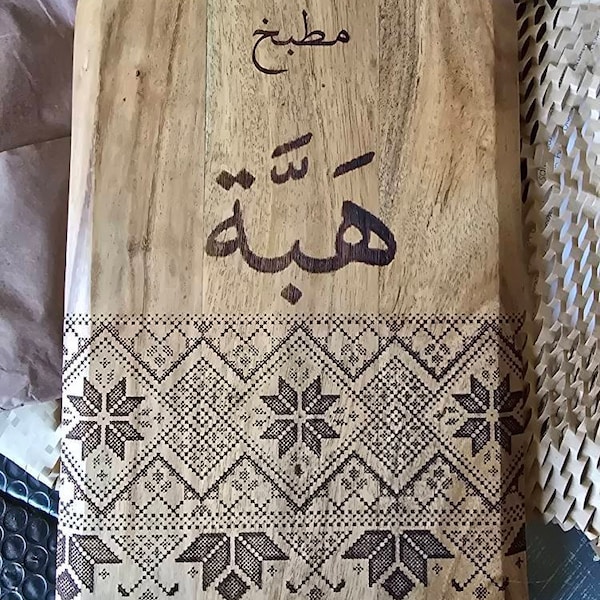 مطبخ
هَبَّة